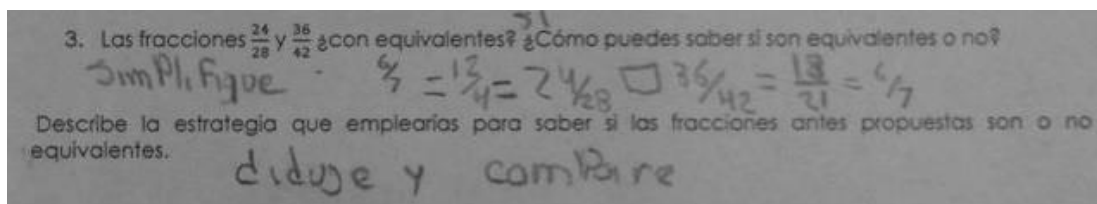 si
3. Las fracciones 24/28 y 36/42 ¿con equivalentes? ¿Cómo puedes saber si son equivalentes o no?
Simplifique 6/7 = 12/4 = 24/28 □ 36/42 = 18/21 = 6/7
Describe la estrategia que emplearías para saber si las fracciones antes propuestas son o no
equivalentes.
diduje y compare